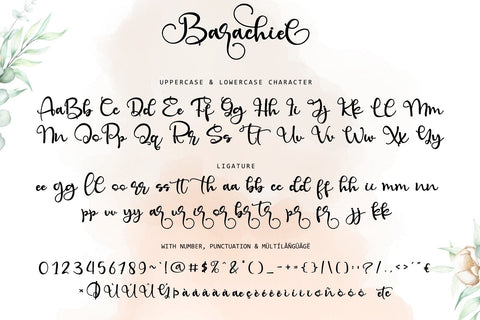 Barachiel
UPPERCASE & LOWERCASE CHARACTER
AaBb Cc Dd Ee Ff Gg Hh Ii Jj Kk Ll Mm
Nn Oo Pp Qq Rr Ss Tt Uu Vv Ww Xx Yy
LIGATURE
ee gg ll oo rr ss tt th aa bb cc dd ff hh ii mm nn
pp vv yy ar ur ir or br tr pr fr jj kk
WITH NUMBER, PUNCTUATION & MÜLTÎLÄÑGÜÃGÈ
0123456789~`!@#$%^&*()_-+={}/\[]:;"?/..<>'"€